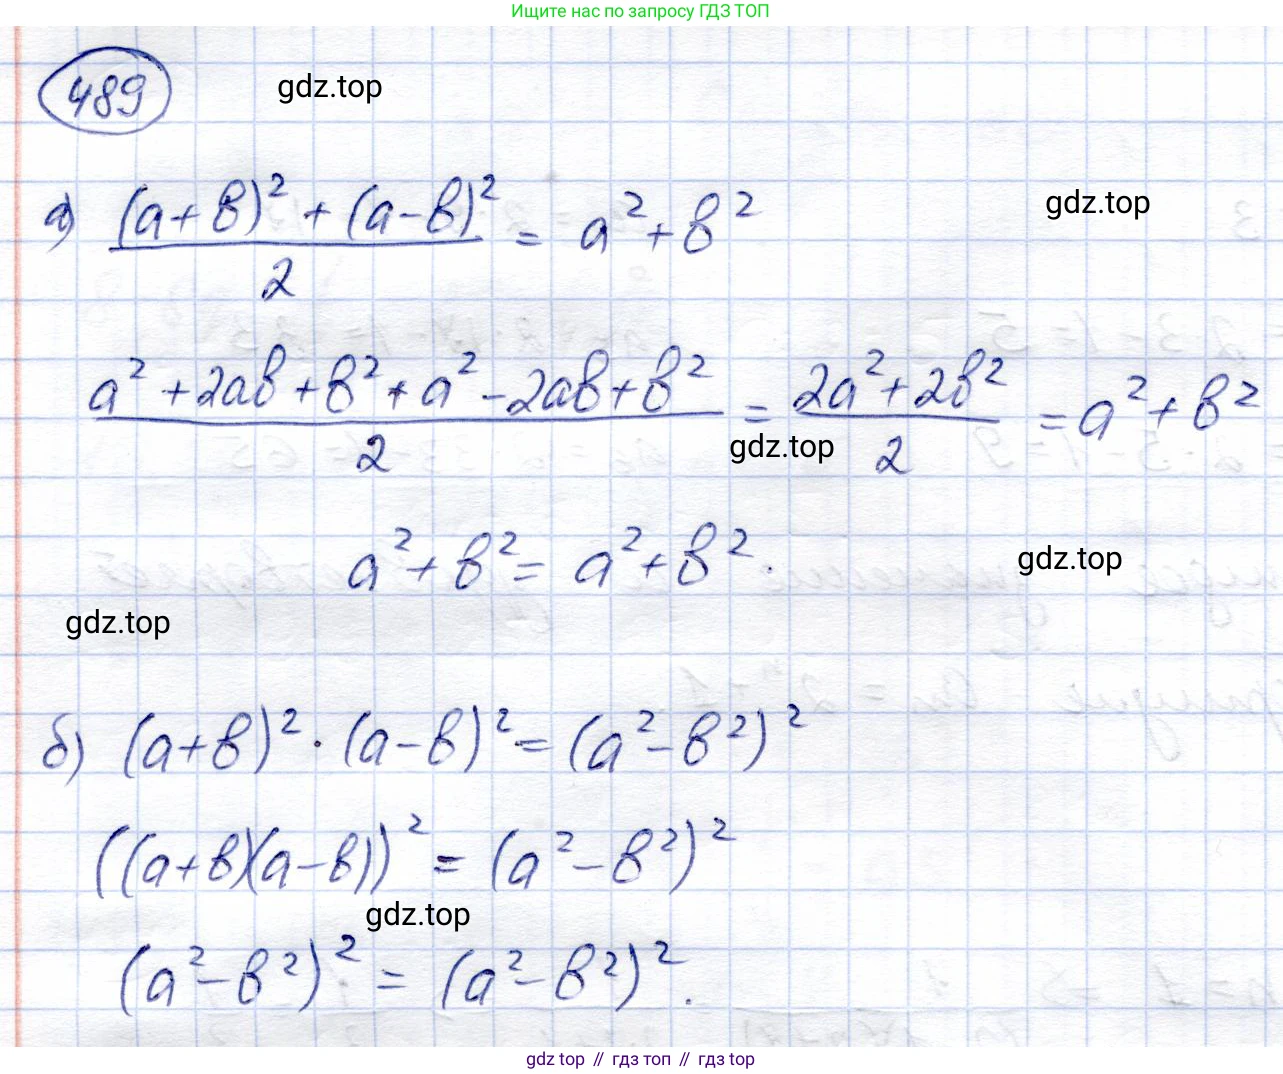 Ищите нас по запросу ГДЗ ТОП
489
gdz.top
а) ((a+b)² + (a-b)²)/2 = a² + b²
gdz.top
(a² + 2ab + b² + a² - 2ab + b²)/2 = (2a² + 2b²)/2 = a² + b²
gdz.top
a² + b² = a² + b².
gdz.top
gdz.top
б) (a+b)² · (a-b)² = (a² - b²)²
((a+b)(a-b))² = (a² - b²)²
gdz.top
(a² - b²)² = (a² - b²)².
gdz top // гдз топ // гдз top